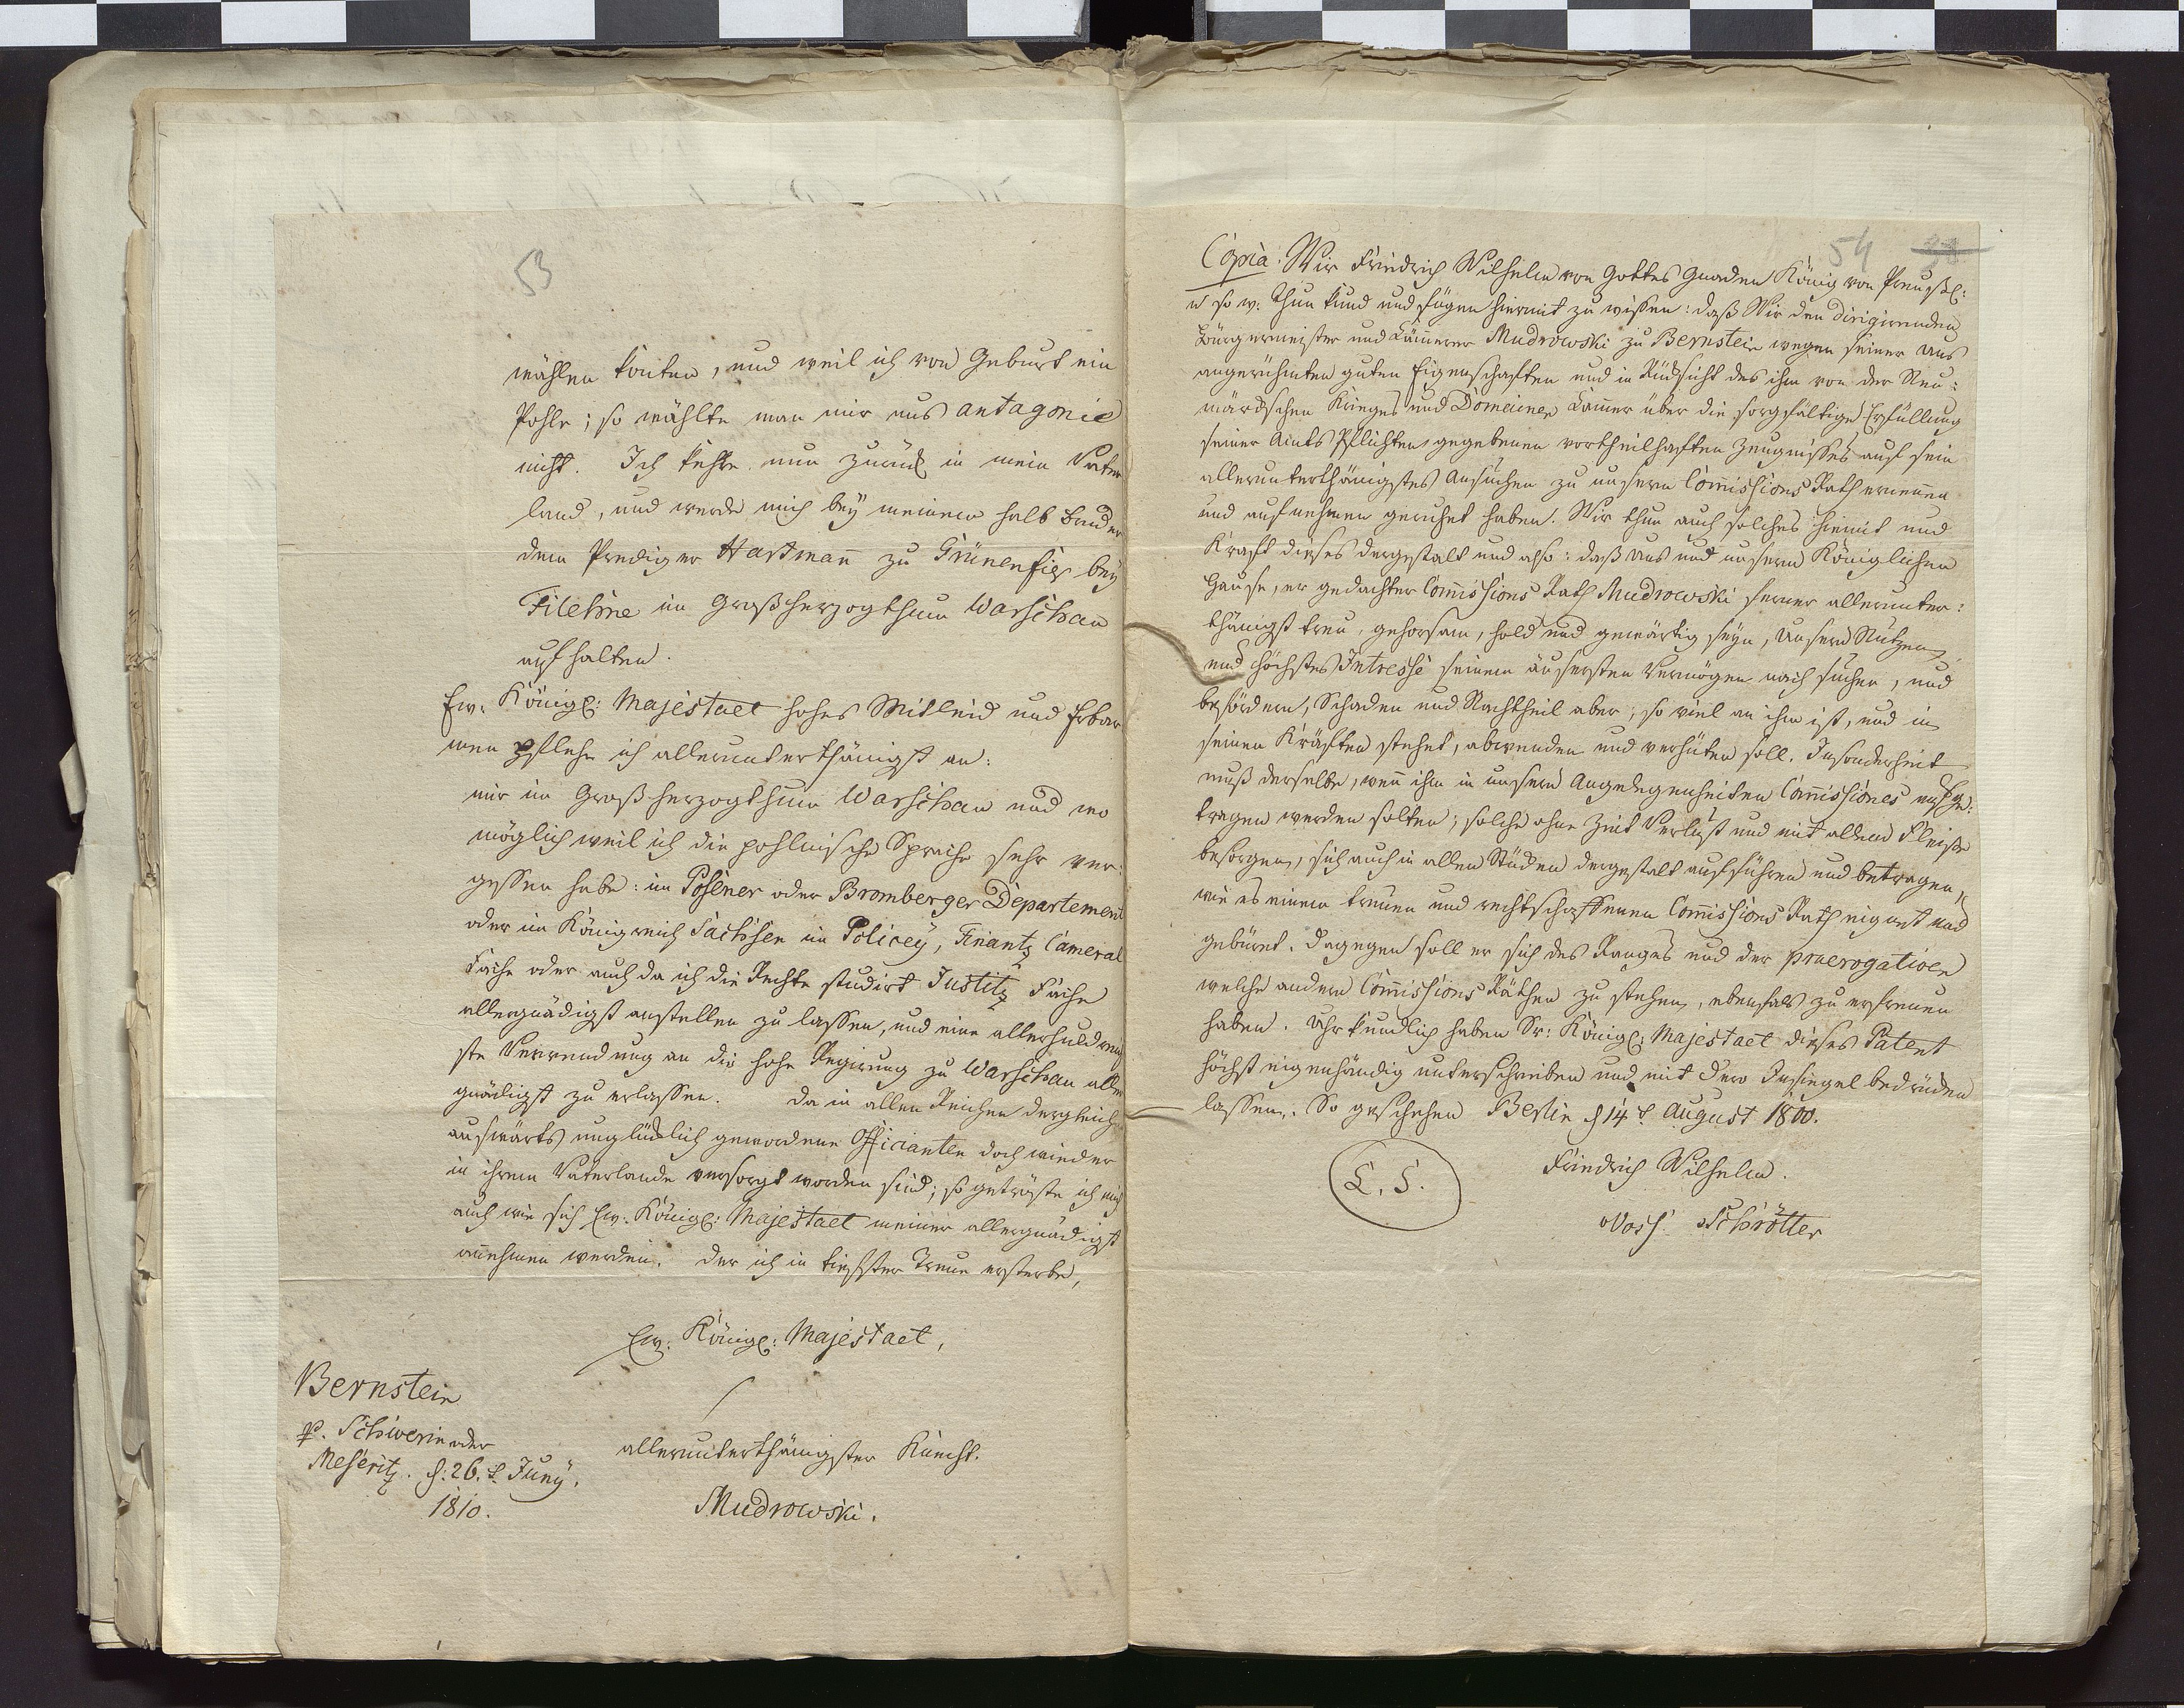 53
wählen konten, und weil ich von Geburt ein
Pohle; so wählte man mir aus antagonie
nicht. Ich kehre nun zurück in mein Vater
land, und werde mich bey meinem halb Bruder
dem Prediger Hartmañ zu Grünenfier bey
Filehne im Großherzogthum Warschau
aufhalten.
Ew. Königl: Majestaet hohes Mitleid und Erbar
men flehe ich allerunterthänigst an:
mir im Großherzogthum Warschau und wo
möglich weil ich die pohlnische Sprache sehr ver:
gessen habe: im Posener oder Bromberger Departement
oder im Königreich Sachsen im Policey, Finantz Cameral
Fache oder auch da ich die Rechte studirt Justitz Fache
allergnädigst anstellen zu lassen, und eine allerhuldreich
ste Verwendung an die hohe Regirung zu Warschau aller
gnädigst zu erlassen. Da in allen Reichen dergleich
auswärts unglücklich gewordene Officianten doch wieder
in ihrem Vaterlande versorgt worden sind; so getröste ich mich
auch wie sich Ew. Königl: Majestaet meiner allergnädigst
añehmen werden. Der ich in tiefster Treue ersterbe,
Ew. Königl: Majestaet,
Bernstein
p. Schwerin oder
Meseritz. d: 26. t. Juny.
1810.
allerunterthänigster Knecht.
Mudrowski.
54
Copia. Wir Friedrich Wilhelm von Gottes Gnaden König von Preußl:
u so w: Thun kund und fügen hiermit zu wißen: daß Wir den dirigirenden
Bürgermeister und Cämerer Mudrowski zu Bernstein wegen seiner Uns
angerühmten guten Eigenschaften und in Rücksicht des ihm von der Neu:
märckschen Krieges und Domeinen Camer über die sorgfältige Erfüllung
seiner Amts Pflichten gegebenen vortheilhaften Zeugnißes auf sein
allerunterthänigstes Ansuchen zu unserm Comissions Rath ernenen
und aufnehmen geruhet haben. Wir thun auch solches hiemit und
Kraft dieses dergestalt und also: daß Uns und unserm Königlichen
Hause, er gedachter Comissions Rath Mudrowski ferner allerunter:
thänigst treu, gehorsam, hold und gewärtig seyn, Unsern Nutzen
und höchstes Intresse seinem äusersten Vermögen nach suchen, und
befördern, Schaden und Nachtheil aber, so viel an ihm ist, und in
seinen Kräften stehet, abwenden und verhüten soll. Insonderheit
muß derselbe, wen ihm in unsern Angelegenheiten Comissiones aufge:
tragen werden solten; solche ohne Zeit Verlust und mit allem Fleiße
besorgen, sich auch in allen Stücken dergestalt aufführen und betragen,
wie es einem treuen und rechtschaffenen Comissions Rath eignet und
gebüret. Dagegen soll er sich des Ranges und der praerogativen
welche andern Comissions Räthen zu stehen, ebenfals zu erfreuen
haben. Uhrkundlich haben Sr: Königl: Majestaet dieses Patent
höchst eigenhändig unterschreiben und mit dero Insiegel bedrücken
lassen. So geschehen Berlin d 14 t August 1800.
L. S.
Friedrich Wilhelm.
v Voss. v Schrötter